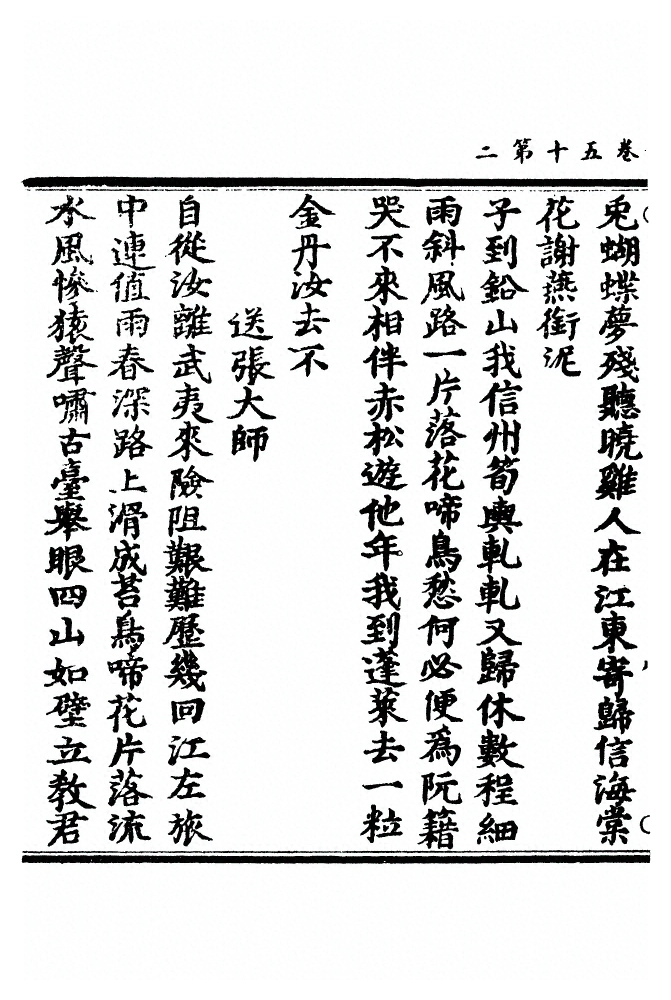 卷五十第二
兎蝴蝶夢殘聽曉雞人在江東寄歸信海棠
花謝燕銜泥
子到鉛山我信州筍輿軋軋又歸休數程細
雨斜風路一片落花啼鳥愁何必便為阮籍
哭不來相伴赤松遊他年我到蓬萊去一粒
金丹汝去不
送張大師
自從汝離武夷來險阻艱難歷幾回江左旅
中連值雨春深路上滑成苔鳥啼花片落流
水風慘猿聲嘯古臺舉眼四山如壁立教君